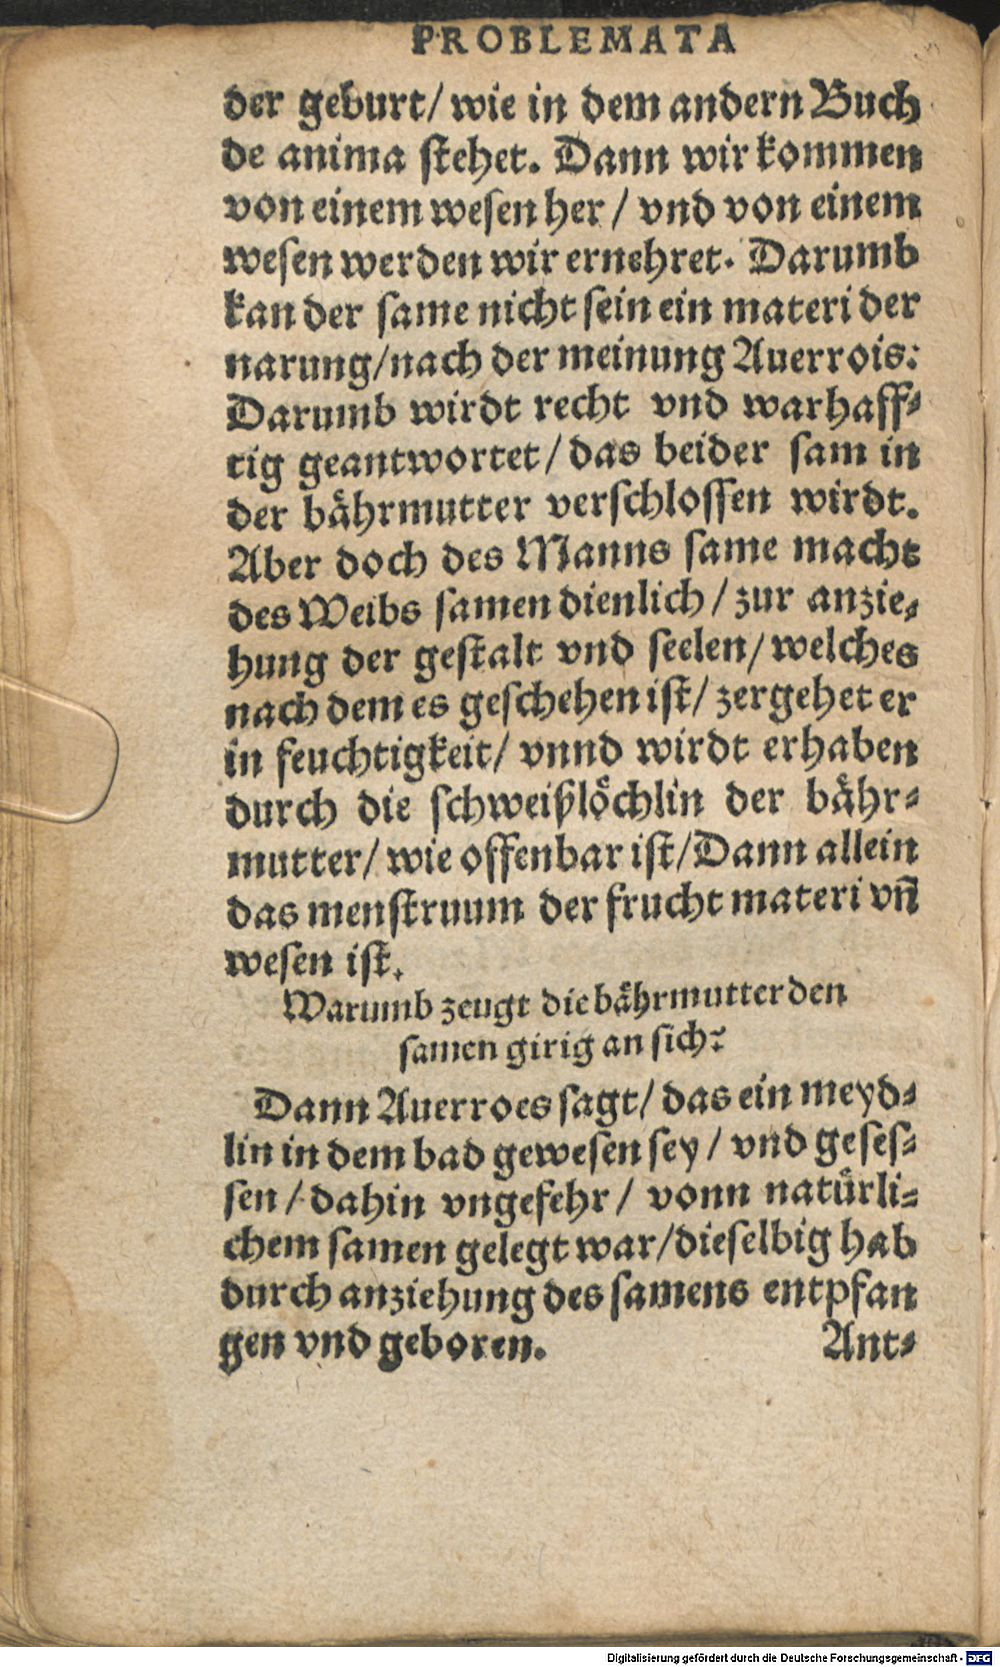 PROBLEMATA
der geburt/ wie in dem andern Buch
de anima stehet. Dann wir kommen
von einem wesen her/ vnd von einem
wesen werden wir ernehret. Darumb
kan der same nicht sein ein materi der
narung/nach der meinung Auerrois:
Darumb wirdt recht vnd warhaff-
tig geantwortet/ das beider sam in
der bährmutter verschlossen wirdt.
Aber doch des Manns same macht
des Weibs samen dienlich/ zur anzie-
hung der gestalt vnd seelen/ welches
nach dem es geschehen ist/ zergehet er
in feuchtigkeit/ vnnd wirdt erhaben
durch die schweißlöchlin der bähr-
mutter/ wie offenbar ist/Dann allein
das menstruum der frucht materi vñ
wesen ist.
Warumb zeugt die bährmutter den
samen girig an sich?
Dann Auerroes sagt/ das ein meyd-
lin in dem bad gewesen sey/ vnd geses-
sen/ dahin vngefehr/ vonn natürli-
chem samen gelegt war/dieselbig hab
durch anziehung des samens entpfan
gen vnd geboren.
Ant-
Digitalisierung gefördert durch die Deutsche Forschungsgemeinschaft - DFG